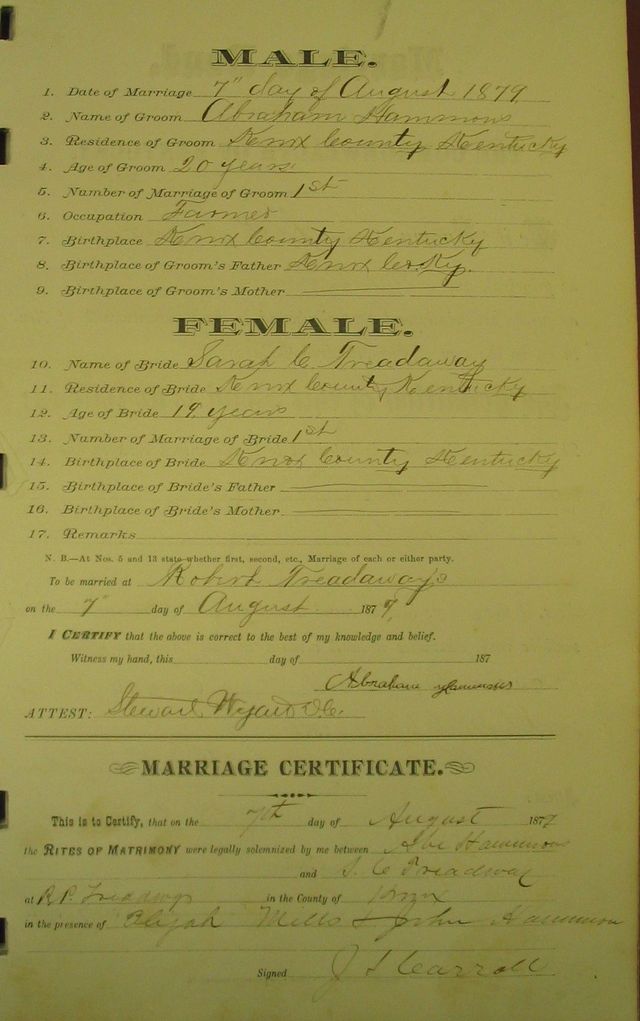 MALE.
1. Date of Marriage 7" day of August 1879
2. Name of Groom Abraham Hammons
3. Residence of Groom Knox County Kentucky
4. Age of Groom 20 years
5. Number of Marriage of Groom 1st
6. Occupation Farmer
7. Birthplace Knox County Kentucky
8. Birthplace of Groom's Father Knox Co. Ky.
9. Birthplace of Groom's Mother
FEMALE.
10. Name of Bride Sarah C Treadaway
11. Residence of Bride Knox County Kentucky
12. Age of Bride 19 years
13. Number of Marriage of Bride 1st
14. Birthplace of Bride Knox County Kentucky
15. Birthplace of Bride's Father
16. Birthplace of Bride's Mother
17. Remarks
N. B.—At Nos. 5 and 13 state whether first, second, etc., Marriage of each or either party.
To be married at Robert Treadaway's
on the 7" day of August 1879
I CERTIFY that the above is correct to the best of my knowledge and belief.
Witness my hand, this day of 187
Abraham Hammons
ATTEST: Stewart D.C.
MARRIAGE CERTIFICATE.
This is to Certify, that on the 7th day of August 1879
the RITES OF MATRIMONY were legally solemnized by me between Abe Hammons
and S. C Treadway
at R.P. in the County of Knox
in the presence of Elijah Mills & John Hammon
Signed J S Carroll